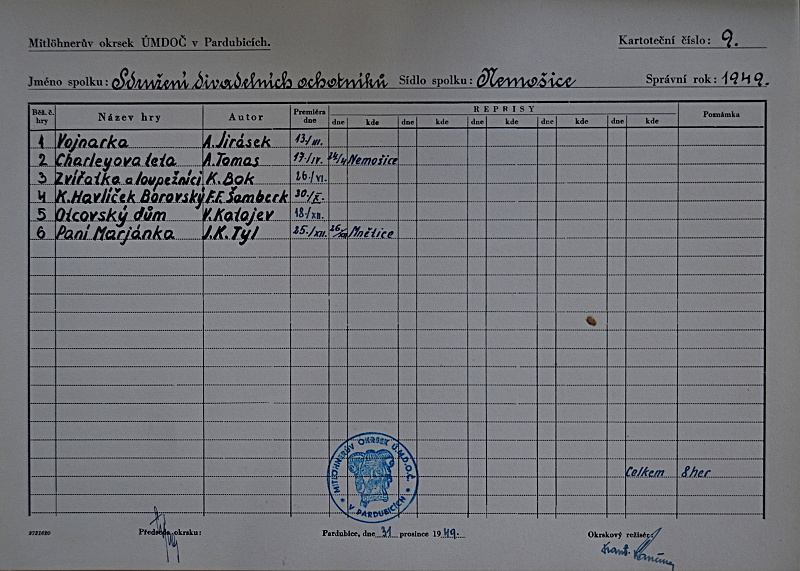 Mitlöhnerův okrsek ÚMDOČ v Pardubicích.
Kartoteční číslo: 9.
Jméno spolku: Sdružení divadelních ochotníků Sídlo spolku: Nemošice Správní rok: 1949.
Běž. č. hry Název hry Autor Premiéra dne REPRISY Poznámka
dne kde dne kde dne kde dne kde
1 Vojnarka A. Jirásek 13./III.
2 Charleyova teta A. Tomas 17./IV. 24/4 Nemošice
3 Zvířátka a loupežníci K. Bok 26./VI.
4 K. Havlíček Borovský F.F. Šamberk 30./X.
5 Otcovský dům V. Katajev 18./XII.
6 Paní Marjánka J.K. Tyl 25./XII. 26/XII Mnětice
MITLÖHNERŮV OKRSEK Ú.M.D.O.Č. V PARDUBICÍCH
Celkem 8 her
Předseda okrsku:
Pardubice, dne 31. prosince 1949.
Okrskový režisér: